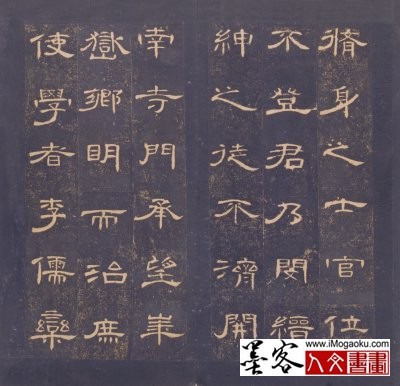 脩身之士官位
不登君乃閔縉
紳之徒不濟開
南寺門承望華
嶽鄉明而治庶
使學者李儒欒
www.iMogaoku.com
墨客
人文書畫